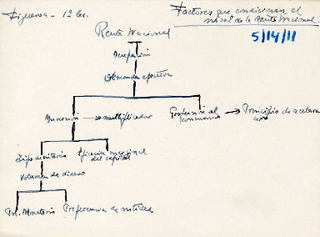 Figueroa - 1º Ec.
Factores que condicionan el
nivel de la Renta Nacional.
5/14/11
Renta Nacional
Ocupación
Demanda efectiva
Inversión → multiplicador
Propensión al
consumo
→ Principio de acelera
ción
Tipo de interés
Eficacia marginal
del capital
Volumen de dinero
Pol. Monetaria
Preferencia de